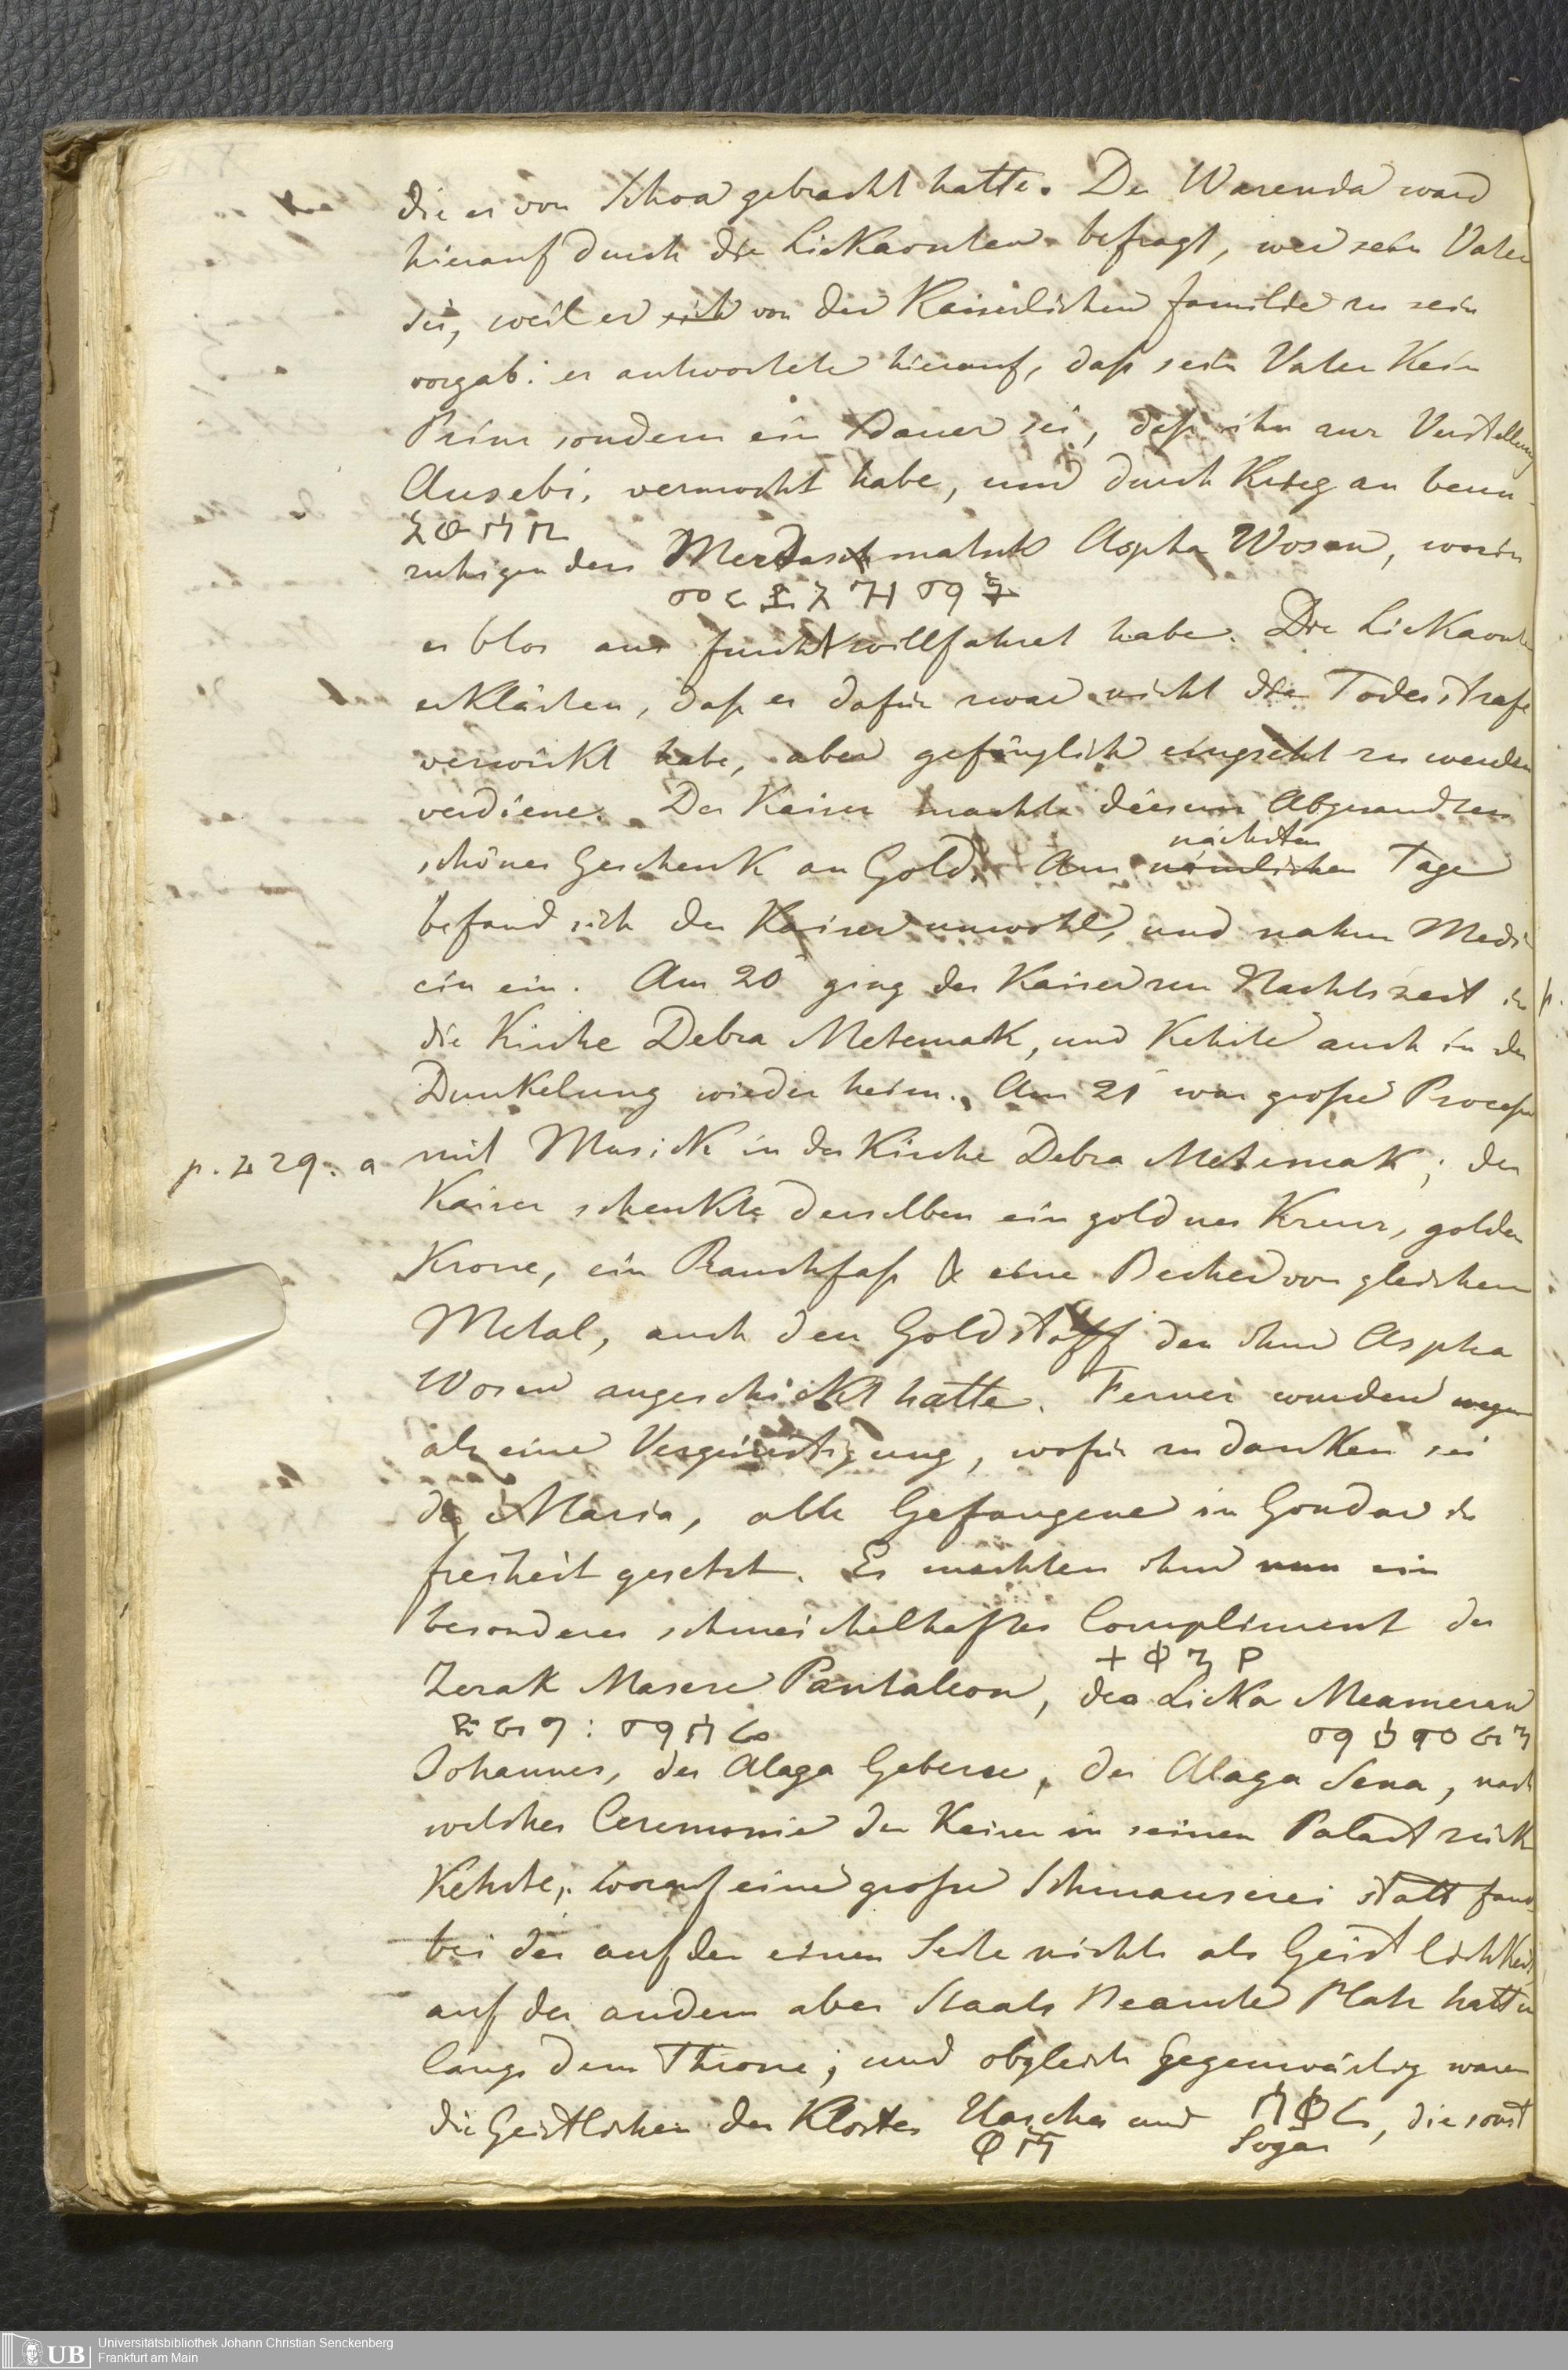 die er von Schoa gebracht hatte. Der Warenda ward
hierauf durch die Lickaonten befragt, wer sein Vater
sei, weil er sich von der Kaiserlichen familie zu sein
vorgab: er antwortete hierauf, daß sein Vater kein
Prinz sondern ein Bauer sei, daß ihn zur Verstellung
Ausebi, vermocht habe, und durch Krieg zu beun-
ruhigen den Merdasmatsch Aspha Wosen, worin
er blos aus furcht willfahret habe. Die Lickaonten
erklärten, daß er dafür zwar nicht die Todesstrafe
verwirkt habe, aber gefänglich eingesetzt zu werden
verdiene. Der Kaiser machte diesem Abgesandten
nächsten
schönes Geschenk an Gold. Am nämlichen Tage
befand sich der Kaiser unwohl, und nahm Medi
cin ein. Am 20 ging der Kaiser zur Nachtszeit in
die Kirche Debra Metemak, und kehrte auch in der
Dunkelung wieder heim. Am 21 war große Proceß
p. 229. a mit Musick in der Kirche Debra Metemak; der
Kaiser schenkte derselben ein goldnes Kreuz, golden
Krone, ein Rauchfaß & eine Becher von gleichem
Metal, auch den Goldstoff den ihm Aspha
Wosen zugeschickt hatte. Ferner wurden wegen
als eine Vergünstigung, wofür zu danken sei
der Maria, alle Gefangene in Gondar in
freiheit gesetzt. Es machten ihm nun ein
besonderes schmeichelhaftes Compliment der
Zerak Masere Pantaleon, der Licka Meameran
Johannes, der Alaga Geberu, der Alaga Sena, nach
welcher Ceremonie der Kaiser in seinen Palast zurück
kehrte, worauf eine große Schmauserei statt fand
bei der auf der einen Seite nichts als Geistlichkeit,
auf der andern aber Staats Beamte Platz hatten
längs dem Throne; und obgleich gegenwärtig waren
die Geistlichen der Kloster Uascha und Sogar, die sonst
ዋሻ
Universitätsbibliothek Johann Christian Senckenberg
Frankfurt am Main
UB